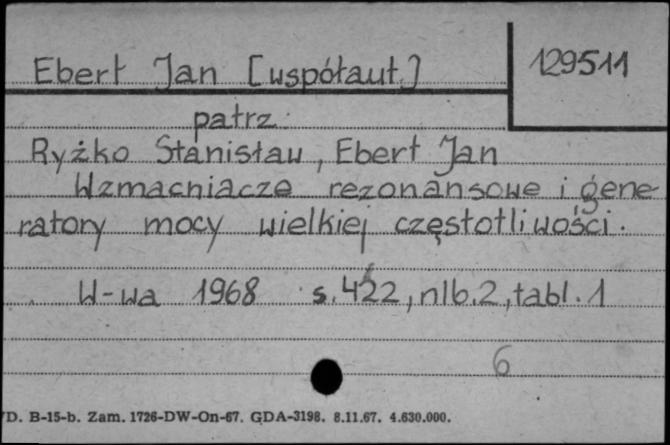 Ebert Jan [współaut.]
129511
patrz:
Ryżko Stanisław, Ebert Jan
Wzmacniacze rezonansowe i gene-
ratory mocy wielkiej częstotliwości.
W-wa 1968 s. 422, nlb. 2, tabl. 1
6
D. B-15-b. Zam. 1726-DW-On-67. GDA-3198. 8.11.67. 4.630.000.